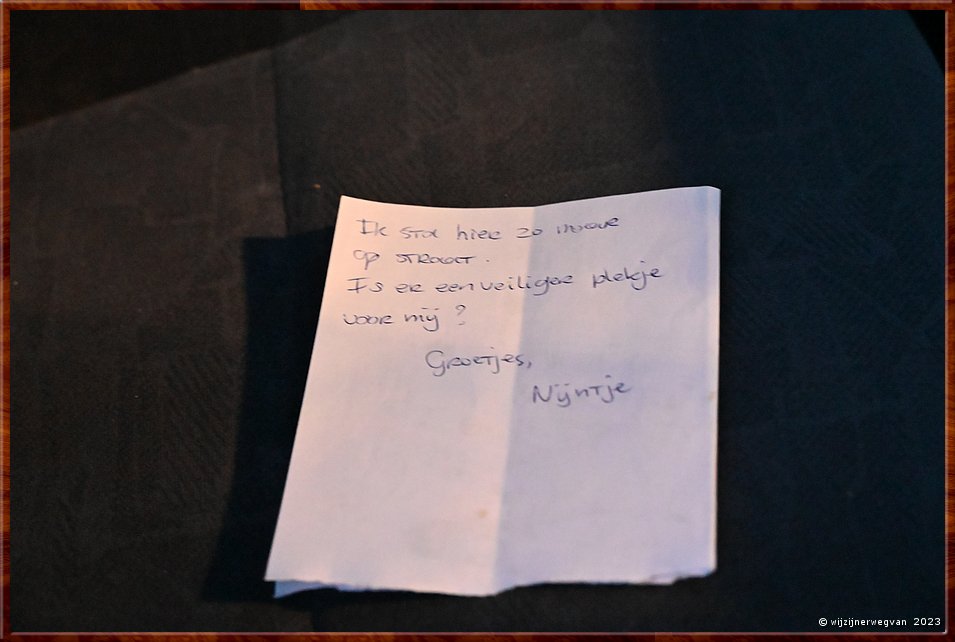 Ik sta hier zo
op straat.
Is er een veiliger plekje
voor mij?
Groetjes,
Nijntje
© wijzijnerwegvan 2023